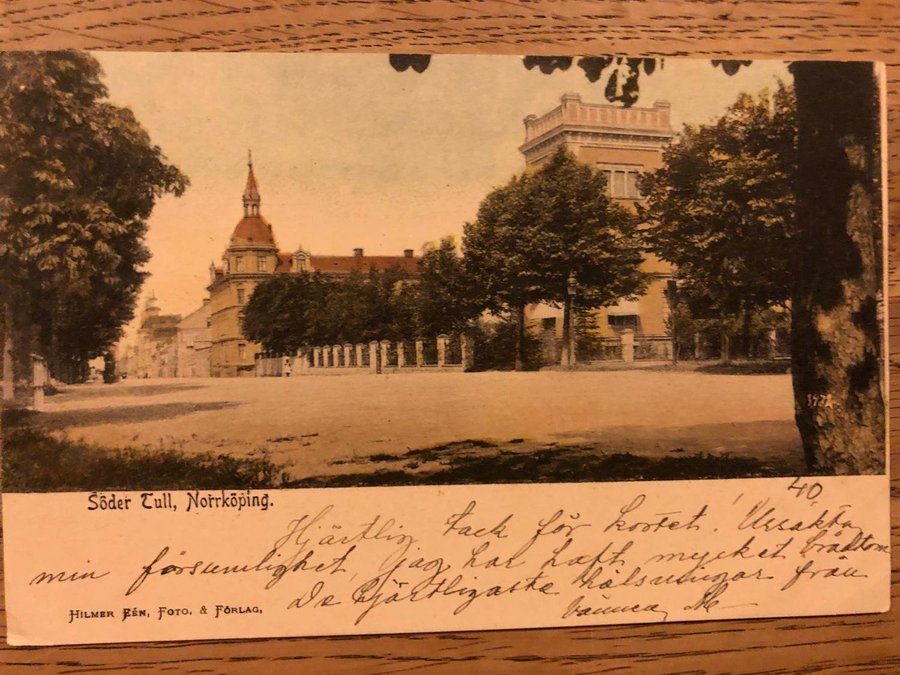 3572.
Söder Tull, Norrköping.
40
Hjärtlig tack för kortet! Ursäkta
min försumlighet, jag har haft mycket brådtom
De hjärtligaste hälsningar från
HILMER EÉN, FOTO. & FÖRLAG.